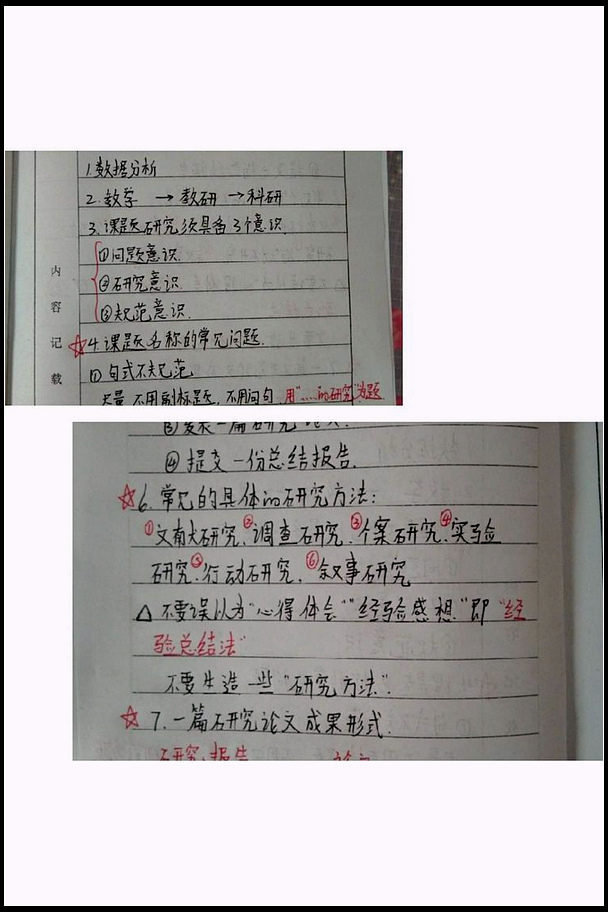 1.数据分析
2.教学 → 教研 → 科研
3.课题研究须具备3个意识
①问题意识.
②研究意识.
③规范意识.
☆4.课题名称的常见问题.
①句式不规范
尽量 不用副标题, 不用问句. 用"……的研究"为题
内容记载
③发表一篇研究论文.
④提交一份总结报告.
☆6.常见的具体的研究方法:
①文献研究、②调查研究、③个案研究、④实验
研究、⑤行动研究、⑥叙事研究
△不要误以为"心得体会""经验感想"即"经
验总结法"
不要生造一些"研究方法".
☆7.一篇研究论文成果形式.
研究报告 论文